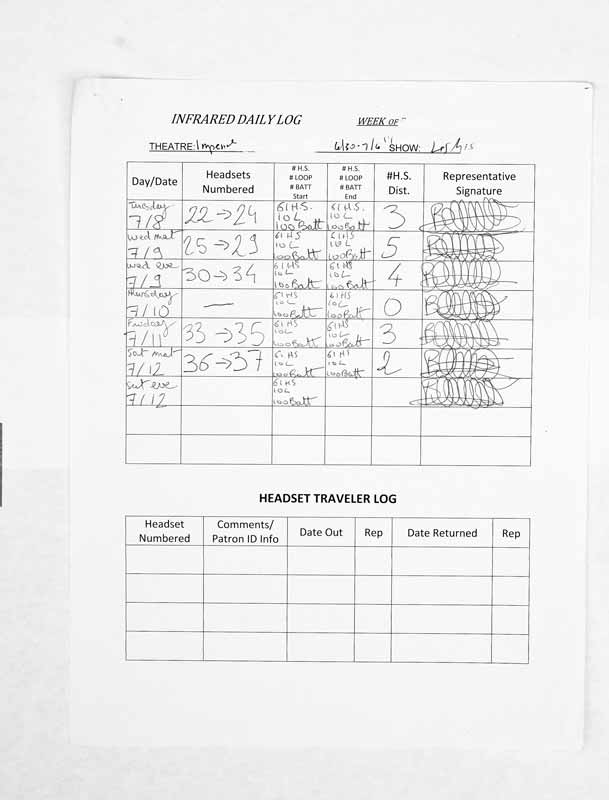 INFRARED DAILY LOG WEEK OF
THEATRE: Imperial 6/30-7/6 SHOW: Les Mis
Day/Date Headsets Numbered # H.S. # LOOP # BATT Start # H.S. # LOOP # BATT End #H.S. Dist. Representative Signature
Tuesday 7/8 22→24 61 H.S. 10 L 100 Batt 61 H.S. 10 L 100 Batt 3
Wed mat 7/9 25→29 61 HS 10 L 100 Batt 61 HS 10 L 100 Batt 5
Wed eve 7/9 30→34 61 HS 10 L 100 Batt 61 HS 10 L 100 Batt 4
Thursday 7/10 — 61 HS 10L 100 Batt 61 HS 10L 100 Batt 0
Friday 7/11 33→35 61 HS 10L 100 Batt 61 HS 10L 100 Batt 3
Sat mat 7/12 36→37 61 HS 10L 100 Batt 61 HS 10L 100 Batt 2
Sat eve 7/12 61 HS 10L 100 Batt
HEADSET TRAVELER LOG
Headset Numbered Comments/ Patron ID Info Date Out Rep Date Returned Rep